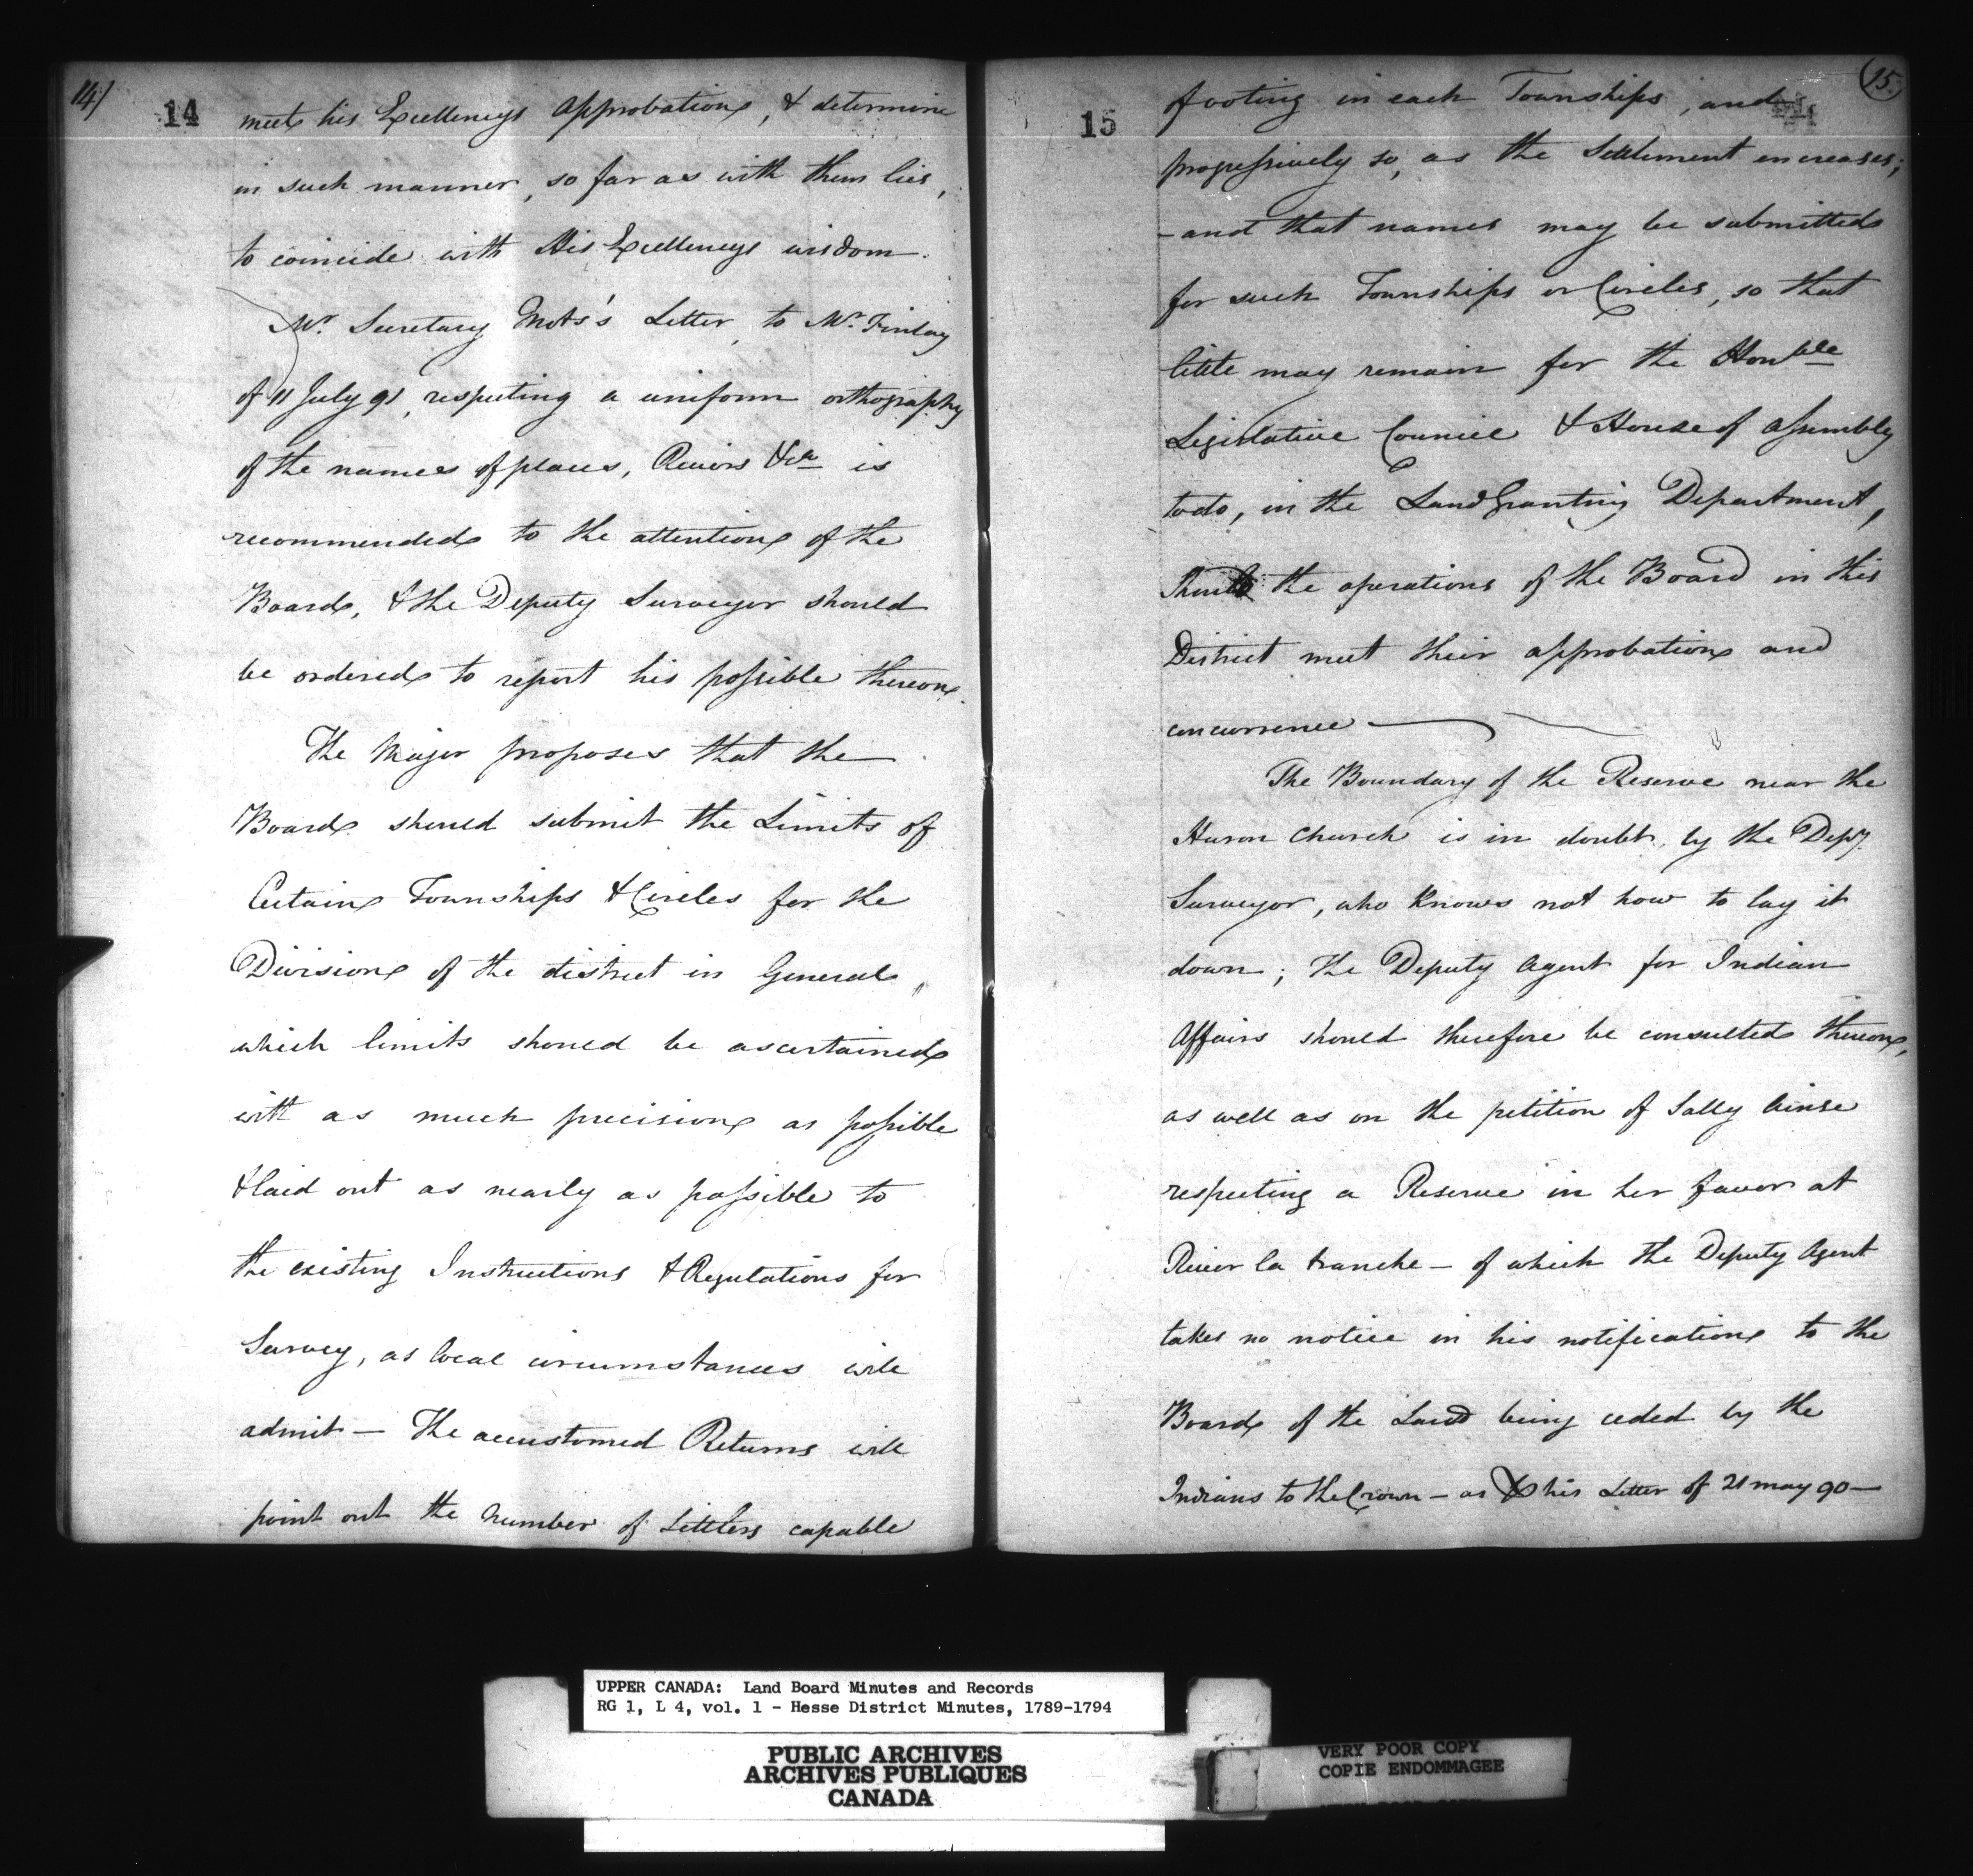 14/
14
meet his Excellencys approbation, & determine
in such manner, so far as with them lies,
to coincide with His Excellencys wisdom.
Mr. Secretary Motz's Letter, to Mr. Finlay
of 11 July 91, respecting a uniform orthography
of the names of places, Rivers &ca is
recommended to the attention of the
Board, & the Deputy Surveyor should
be ordered to report his possible thereon.
The Major proposes that the
Board should submit the Limits of
Certain Townships & Circles for the
Division of the district in General,
which limits should be ascertained
with as much precision as possible
& laid out as nearly as possible to
the existing Instructions & Regulations for
Survey, as local circumstances will
admit — The accustomed Returns will
point out the number of Settlers capable
15
15
footing in each Townships, and
progressively so, as the Settlement encreases;
- and that names may be submitted
for such Townships or Circles, so that
little may remain for the Honble
Legislative Council & House of Assembly
to do, in the Land Granting Department,
Should the operations of the Board in this
District meet their approbation and
concurrence —
The Boundary of the Reserve near the
Huron Church is in doubt, by the Depy.
Surveyor, who knows not how to lay it
down; the Deputy Agent for Indian
Affairs should therefore be consulted thereon,
as well as on the petition of Sally Ainse
respecting a Reserve in her favor at
River la tranche — of which the Deputy Agent
takes no notice in his notification to the
Board of the Land being ceded by the
Indians to the Crown — as his Letter of 21 may 90 —
UPPER CANADA: Land Board Minutes and Records
RG 1, L 4, vol. 1 - Hesse District Minutes, 1789-1794
PUBLIC ARCHIVES
ARCHIVES PUBLIQUES
CANADA
VERY POOR COPY
COPIE ENDOMMAGEE